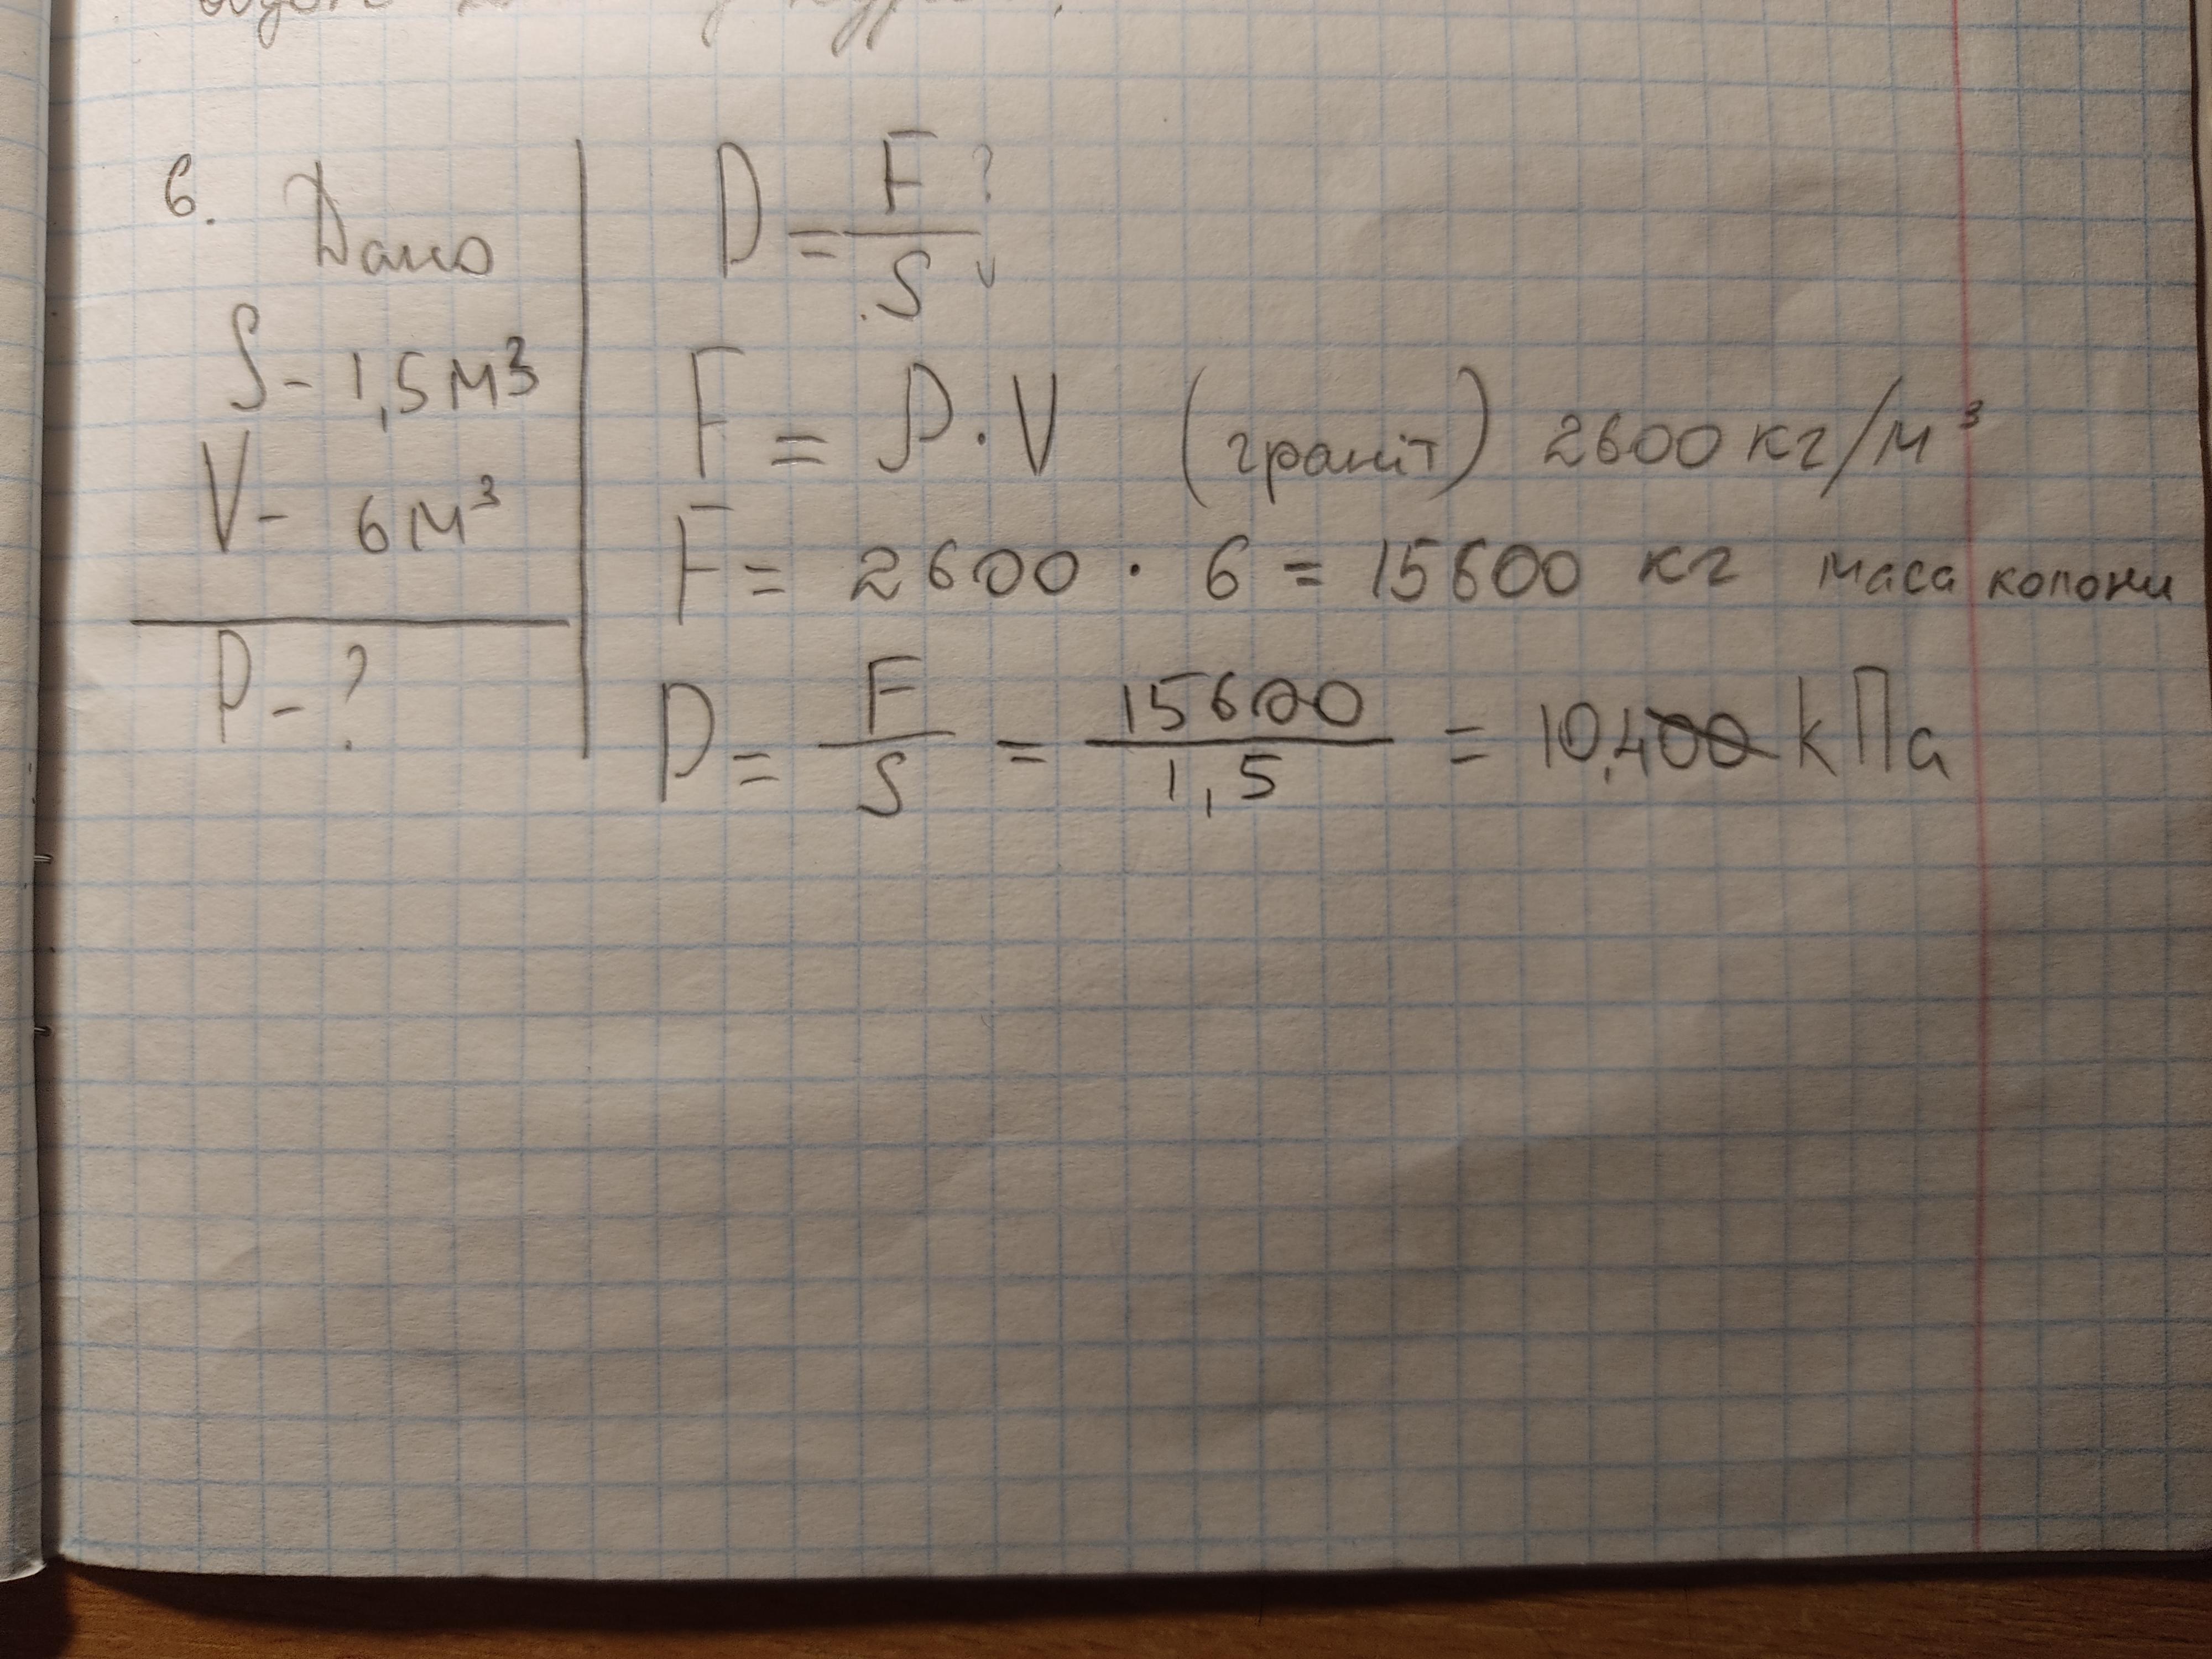 6. Дано
S - 1,5 м³
V - 6 м³
P - ?
D = F ? / S v
F = P · V (граніт) 2600 кг/м³
F = 2600 · 6 = 15600 кг маса колони
D = F / S = 15600 / 1,5 = 10,400 кПа